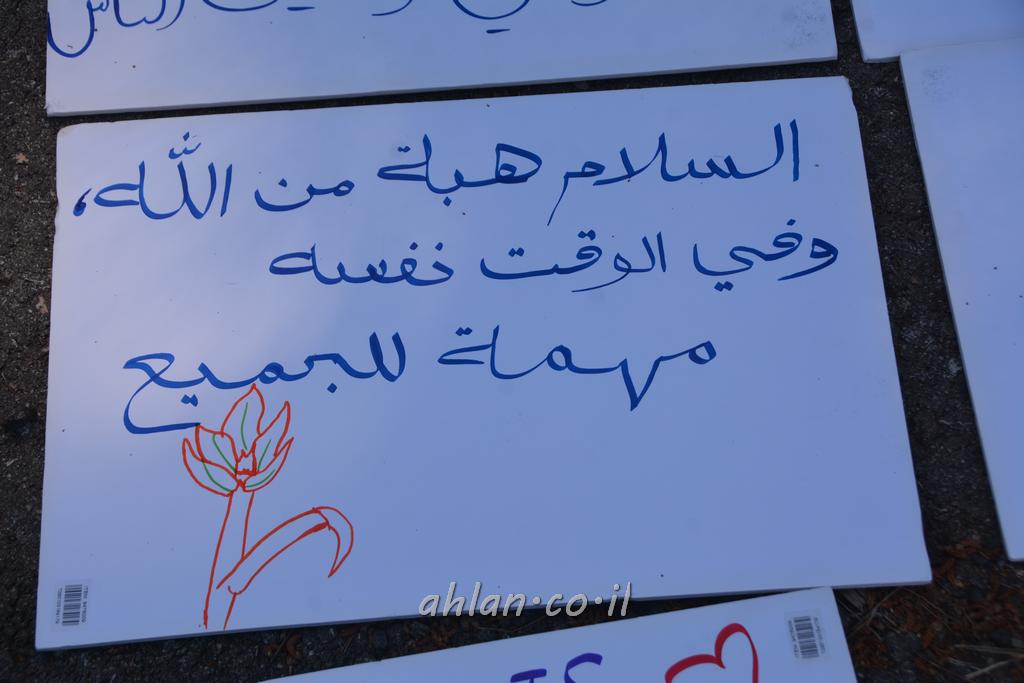 الناس
السلام هبة من اللّٰه،
وفي الوقت نفسه
مهمة للجميع
ahlan.co.il